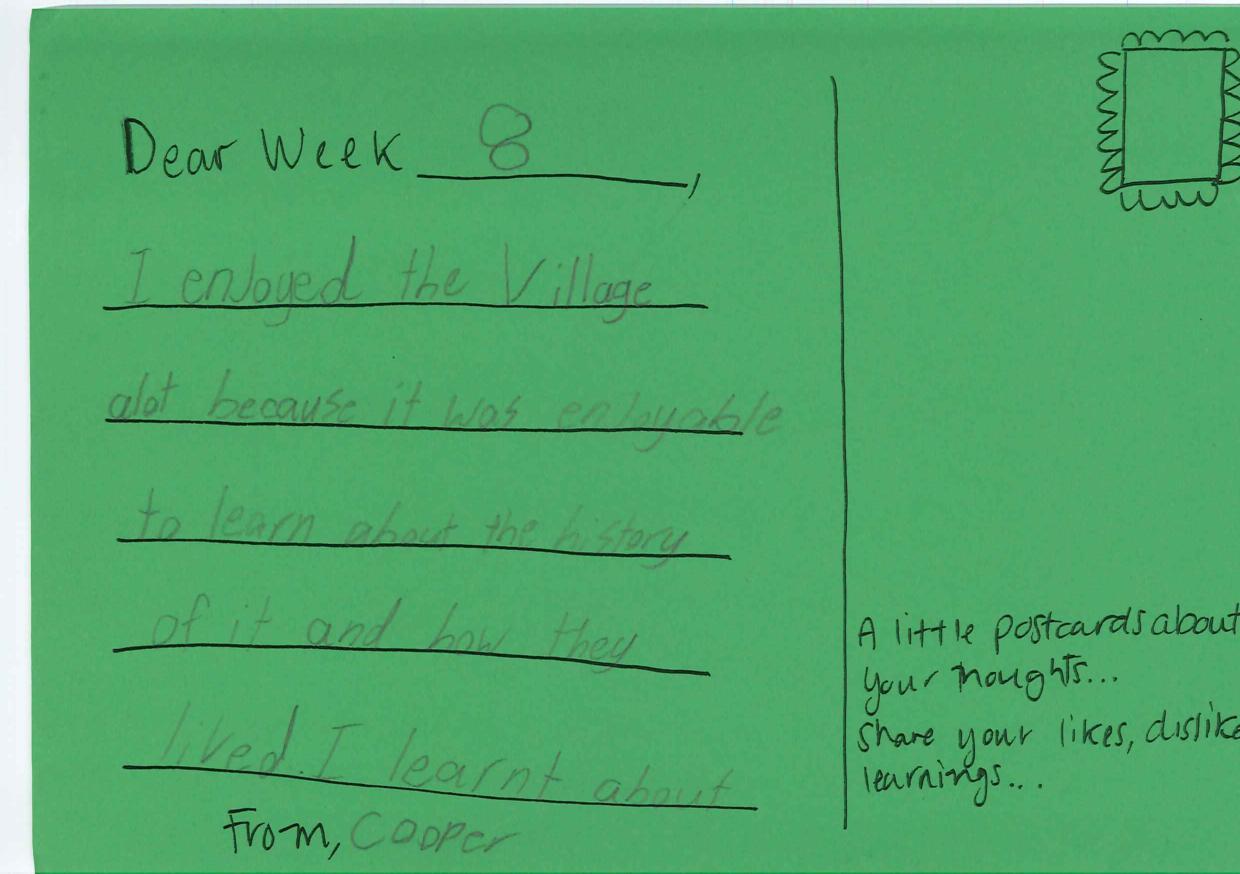 Dear Week 8,
I enjoyed the Village
alot because it was enjoyable
to learn about the history
of it and how they
lived. I learnt about
From, Cooper
A little postcards about
your thoughts...
share your likes, dislike
learnings...